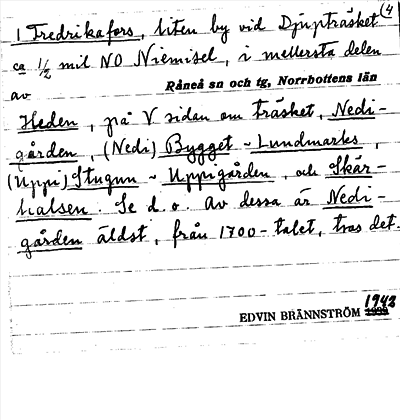 (4
1 Fredrikafors, liten by vid Djupträsket
ca 1/2 mil NO Niemisel, i mellersta delen
av
Råneå sn och tg, Norrbottens län
Heden, på V sidan om träsket, Nedi-
gården, (Nedi) Bygget ~ Lundmarks,
(Uppi) Stugun ~ Uppigården, och Skär-
halsen. Se d.o. Av dessa är Nedi-
gården äldst, från 1700-talet, tros det.
1942
EDVIN BRÄNNSTRÖM 1939